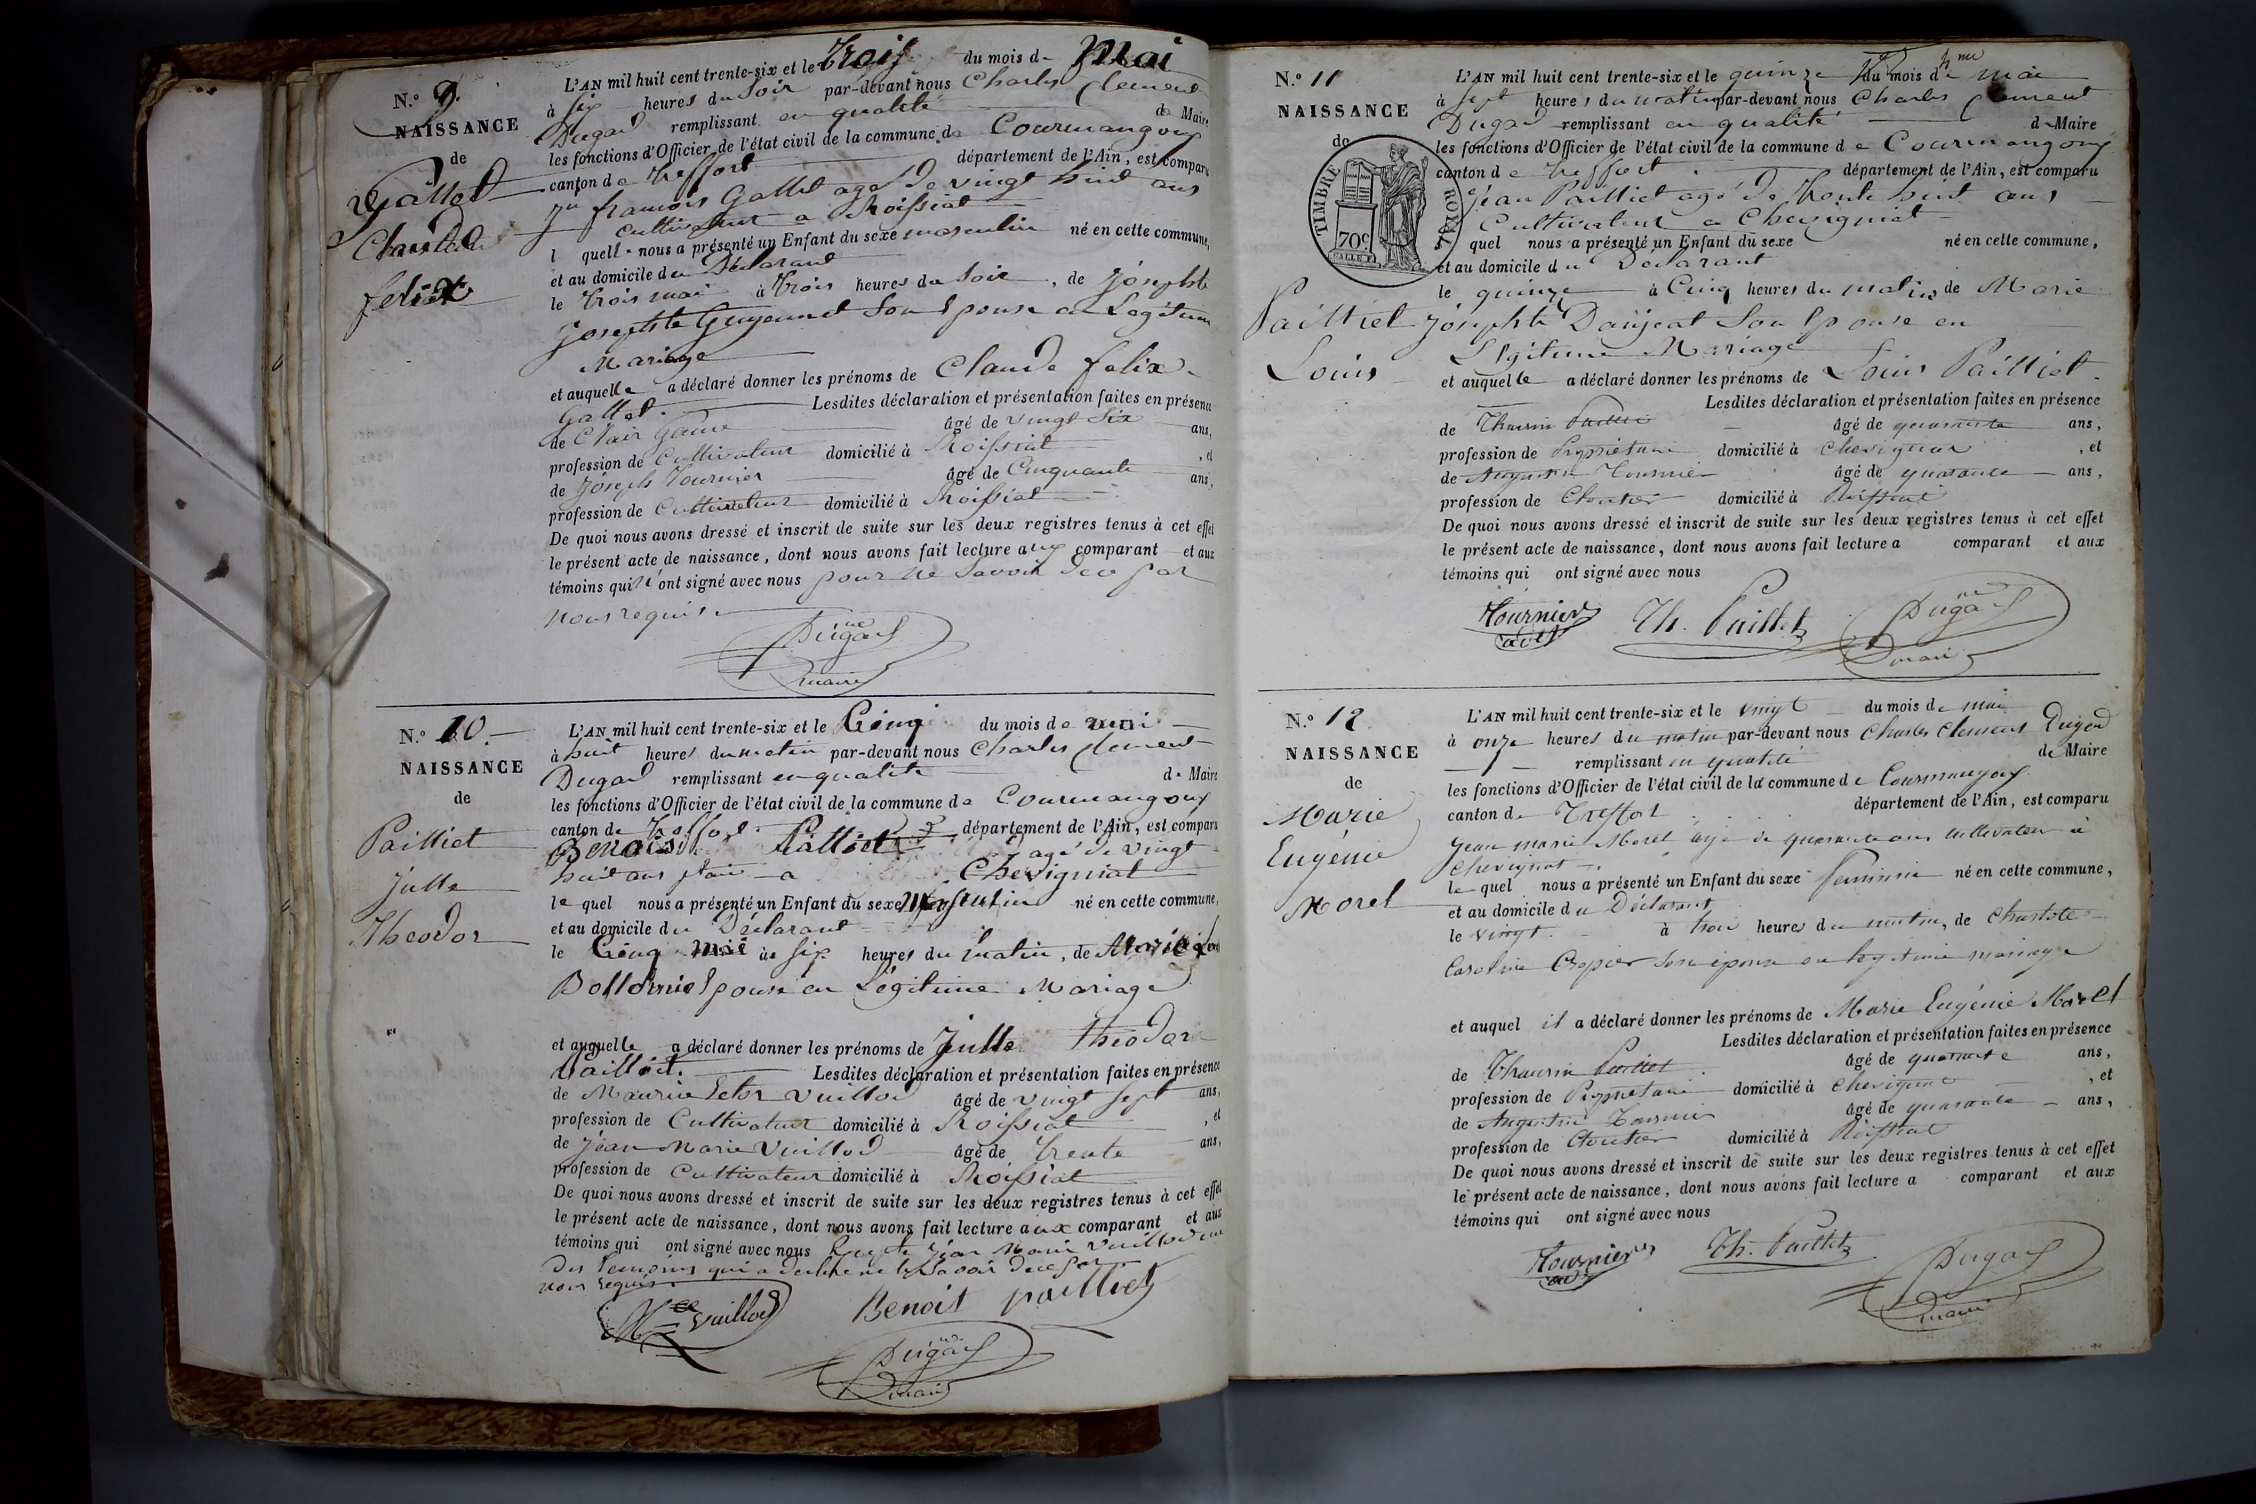 N.° 9.
NAISSANCE
de
Gallet
Claude
felix
L'AN mil huit cent trente-six et le trois du mois de Mai
à six heures du soir par-devant nous Charles Clement
Dugad remplissant en qualité de Maire
les fonctions d'Officier de l'état civil de la commune de Courmangoux
canton de treffort département de l'Ain, est comparu
Jn francois Gallet agé de vingt huit ans
cultivateur a Roissiat
l quell nous a présenté un Enfant du sexe masculin né en cette commune,
et au domicile du Déclarant
le trois mai à trois heures du soir, de Josephte
Josephte Guyennet son Epouse en Legitime
Mariage
et auquelle a déclaré donner les prénoms de Claude felix
Gallet. Lesdites déclaration et présentation faites en présence
de Clair âgé de vingt six ans,
profession de Cultivateur domicilié à Roissiat, et
de Joseph Tournier âgé de Cinquante ans,
profession de Cultivateur domicilié à Roissiat
De quoi nous avons dressé et inscrit de suite sur les deux registres tenus à cet effet
le présent acte de naissance, dont nous avons fait lecture aux comparant et aux
témoins qui n'ont signé avec nous pour ne savoir de ce par
nous requis
Dugad
maire
N.° 10.
NAISSANCE
de
Pailliet
Julle
Theodor
L'AN mil huit cent trente-six et le Cinq du mois de mai
à huit heures du matin par-devant nous Charles Clement
Dugad remplissant en qualité de Maire
les fonctions d'Officier de l'état civil de la commune de Courmangoux
canton de treffort département de l'Ain, est comparu
Benoist Pailliet agé de vingt
huit ans a Chevigniat
le quel nous a présenté un Enfant du sexe Masculin né en cette commune,
et au domicile du Déclarant
le Cinq mai à six heures du matin, de Marie
Epouse en Légitime Mariage
et auquelle a déclaré donner les prénoms de Julle theodor
Pailliet. Lesdites déclaration et présentation faites en présence
de Maurice Vuillod âgé de vingt sept ans,
profession de Cultivateur domicilié à Roissiat, et
de Jean Marie Vuillod âgé de trente ans,
profession de Cultivateur domicilié à Roissiat
De quoi nous avons dressé et inscrit de suite sur les deux registres tenus à cet effet
le présent acte de naissance, dont nous avons fait lecture aux comparant et aux
témoins qui ont signé avec nous Jean Marie Vuillod un
des temoins qui a declaré ne le savoir de ce par
nous requis
Mce Vuillod Benoit pailliet
Dugad
maire
N.° 11
NAISSANCE
de
TIMBRE ROYAL
70c
Pailliet
Louis
L'AN mil huit cent trente-six et le quinze du mois de mai
à sept heures du matin par-devant nous Charles Clement
Dugad remplissant en qualité de Maire
les fonctions d'Officier de l'état civil de la commune de Courmangoux
canton de treffort département de l'Ain, est comparu
Jean Pailliet agé de trente huit ans
Cultivateur a Chevigniat
quel nous a présenté un Enfant du sexe né en cette commune,
et au domicile du Declarant
le quinze à Cinq heures du matin, de Marie
Josephte Daujeat Son Epouse en
Légitime Mariage
et auquelle a déclaré donner les prénoms de Louis Pailliet.
Lesdites déclaration et présentation faites en présence
de Thaurin Paillet âgé de quarante ans,
profession de Propriétaire domicilié à Chevignat, et
de Augustin Tournier âgé de quarante ans,
profession de Cloutier domicilié à Roissiat
De quoi nous avons dressé et inscrit de suite sur les deux registres tenus à cet effet
le présent acte de naissance, dont nous avons fait lecture a comparant et aux
témoins qui ont signé avec nous
Tournier Th. Paillet Dugad
maire
N.° 12
NAISSANCE
de
Marie
Eugénie
Morel
L'AN mil huit cent trente-six et le vingt du mois de mai
à onze heures du matin par-devant nous Charles Clement Dugad
remplissant en qualité de Maire
les fonctions d'Officier de l'état civil de la commune de Courmangoux
canton de Treffort département de l'Ain, est comparu
Jean marie Morel agé de quarante ans cultivateur à
Chevignat
le quel nous a présenté un Enfant du sexe feminin né en cette commune,
et au domicile du Déclarant
le vingt à trois heures du matin, de Charlote
Caroline son épouse en legitime mariage
et auquel il a déclaré donner les prénoms de Marie Eugénie Morel
Lesdites déclaration et présentation faites en présence
de Thaurin Paillet âgé de quarante ans,
profession de Propriétaire domicilié à Chevignat, et
de Augustin Tournier âgé de quarante ans,
profession de Cloutier domicilié à Roissiat
De quoi nous avons dressé et inscrit de suite sur les deux registres tenus à cet effet
le présent acte de naissance, dont nous avons fait lecture a comparant et aux
témoins qui ont signé avec nous
Tournier Th. Paillet Dugad
maire